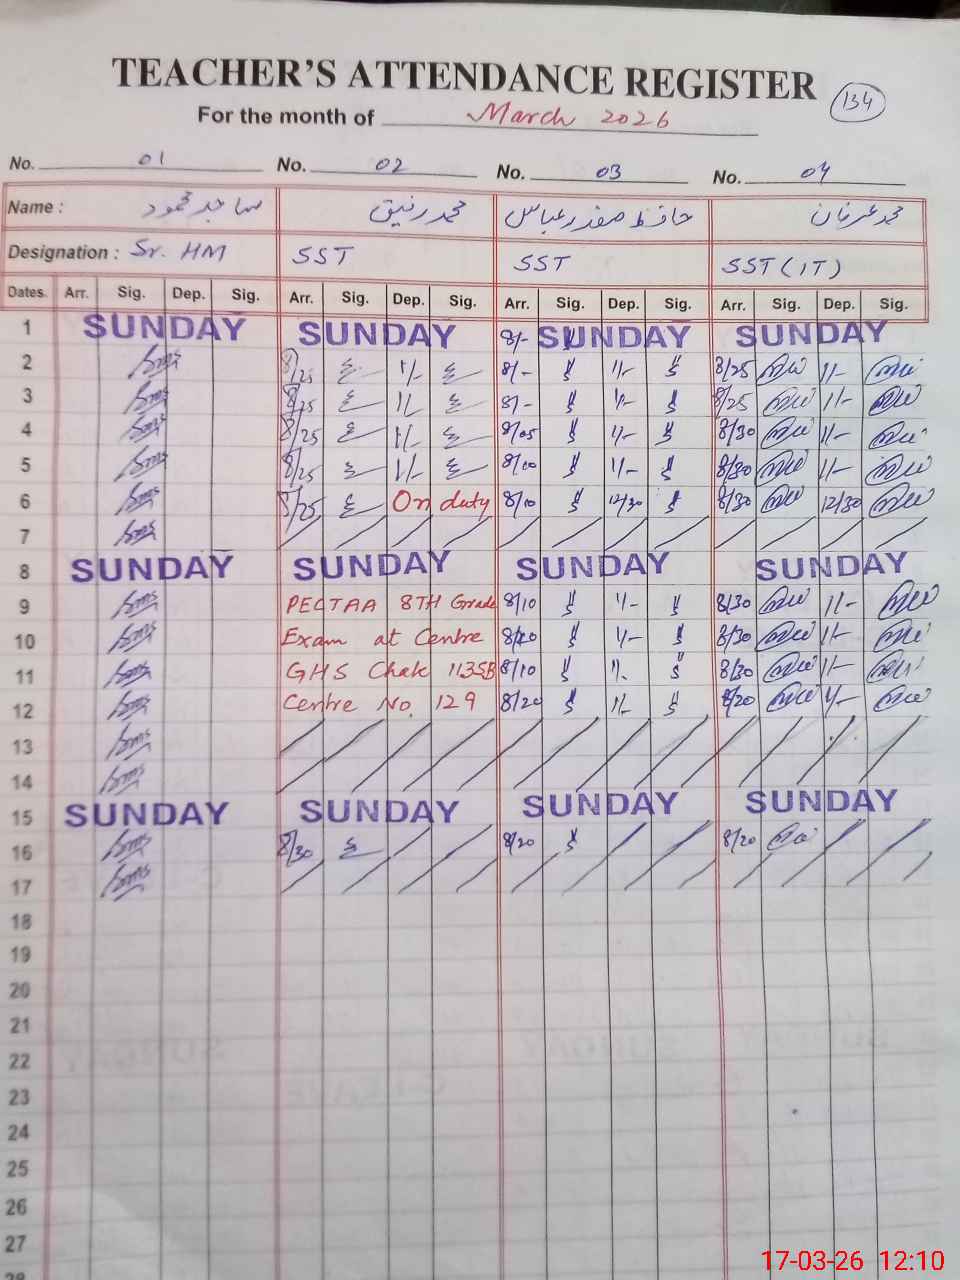 TEACHER'S ATTENDANCE REGISTER
134
For the month of March 2026
No. 01 No. 02 No. 03 No. 04
Name : ساجد محمود محمد رفیق حافظ صفدر عباس محمد عرفان
Designation : Sr. HM SST SST SST (IT)
Dates. Arr. Sig. Dep. Sig. Arr. Sig. Dep. Sig. Arr. Sig. Dep. Sig. Arr. Sig. Dep. Sig.
1 SUNDAY SUNDAY 8/- SUNDAY SUNDAY
2 8/25 1/- 8/- 1/- 8/25 1/-
3 8/25 1/- 8/- 1/- 8/25 1/-
4 8/25 1/- 8/05 1/- 8/30 1/-
5 8/25 1/- 8/10 1/- 8/30 1/-
6 8/25 On duty 8/10 12/30 8/30 12/30
7
8 SUNDAY SUNDAY SUNDAY SUNDAY
9 PECTAA 8TH Grade 8/10 1/- 8/30 1/-
10 Exam at Centre 8/20 1/- 8/30 1/-
11 GHS Chak 113SB 8/10 1/- 8/30 1/-
12 Centre No. 129 8/20 1/- 8/20 1/-
13
14
15 SUNDAY SUNDAY SUNDAY SUNDAY
16 8/30 8/20 8/20
17
18
19
20
21
22
23
24
25
26
27
28
17-03-26 12:10